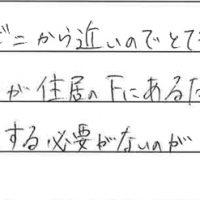 ビニから近いのでとて
が住居の下にあるた
する必要がないのが